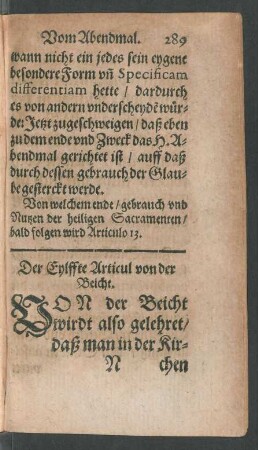 Vom Abendmal. 289
wann nicht ein jedes sein eygene
besondere Form vñ Specificam
differentiam hette / dardurch
es von andern vnderscheydẽ wür-
de: Jetzt zugeschweigen / daß eben
zu dem ende vnd Zweck das H. A-
bendmal gerichtet ist / auff daß
durch dessen gebrauch der Glau-
be gesterckt werde.
Von welchem ende / gebrauch vnd
Nutzen der heiligen Sacramenten /
bald folgen wird Articulo 13.
Der Eylffte Articul von der
Beicht.
VON der Beicht
wirdt also gelehret /
daß man in der Kir-
N chen